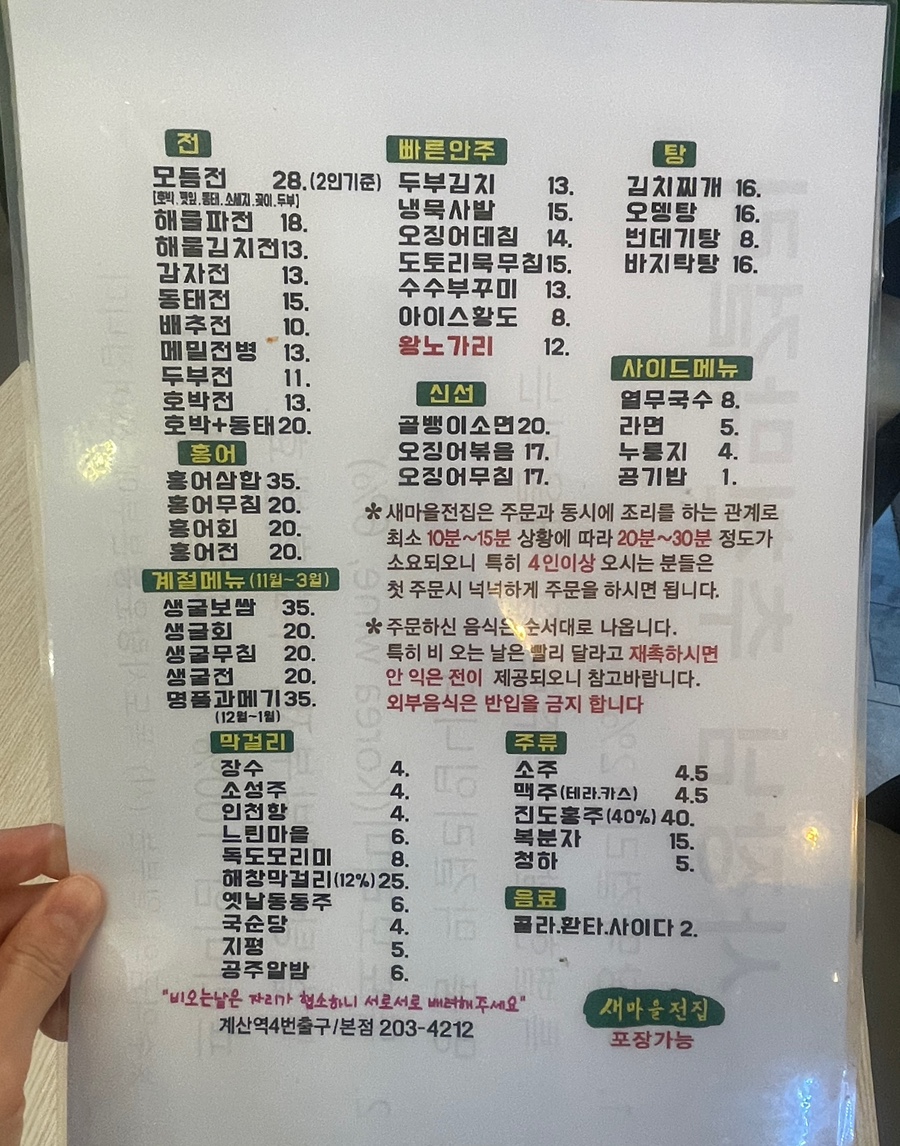 전
모듬전 28.(2인기준)
[호박.깻잎.동태.소세지.꽂이.두부]
해물파전 18.
해물김치전 13.
감자전 13.
동태전 15.
배추전 10.
메밀전병 13.
두부전 11.
호박전 13.
호박+동태 20.
홍어
홍어삼합 35.
홍어무침 20.
홍어회 20.
홍어전 20.
계절메뉴(11월~3월)
생굴보쌈 35.
생굴회 20.
생굴무침 20.
생굴전 20.
명품과메기 35.
(12월~1월)
빠른안주
두부김치 13.
냉묵사발 15.
오징어데침 14.
도토리묵무침 15.
수수부꾸미 13.
아이스황도 8.
왕노가리 12.
신선
골뱅이소면 20.
오징어볶음 17.
오징어무침 17.
탕
김치찌개 16.
오뎅탕 16.
번데기탕 8.
바지락탕 16.
사이드메뉴
열무국수 8.
라면 5.
누룽지 4.
공기밥 1.
*새마을전집은 주문과 동시에 조리를 하는 관계로
최소 10분~15분 상황에 따라 20분~30분 정도가
소요되오니 특히 4인이상 오시는 분들은
첫 주문시 넉넉하게 주문을 하시면 됩니다.
*주문하신 음식은 순서대로 나옵니다.
특히 비 오는 날은 빨리 달라고 재촉하시면
안 익은 전이 제공되오니 참고바랍니다.
외부음식은 반입을 금지 합니다
막걸리
장수 4.
소성주 4.
인천항 4.
느린마을 6.
독도모리미 8.
해창막걸리(12%) 25.
옛날동동주 6.
국순당 4.
지평 5.
공주알밤 6.
주류
소주 4.5
맥주(테라.카스) 4.5
진도홍주(40%) 40.
복분자 15.
청하 5.
음료
콜라.환타.사이다 2.
"비오는날은 자리가 협소하니 서로서로 배려해주세요"
계산역4번출구/본점 203-4212
새마을전집
포장가능